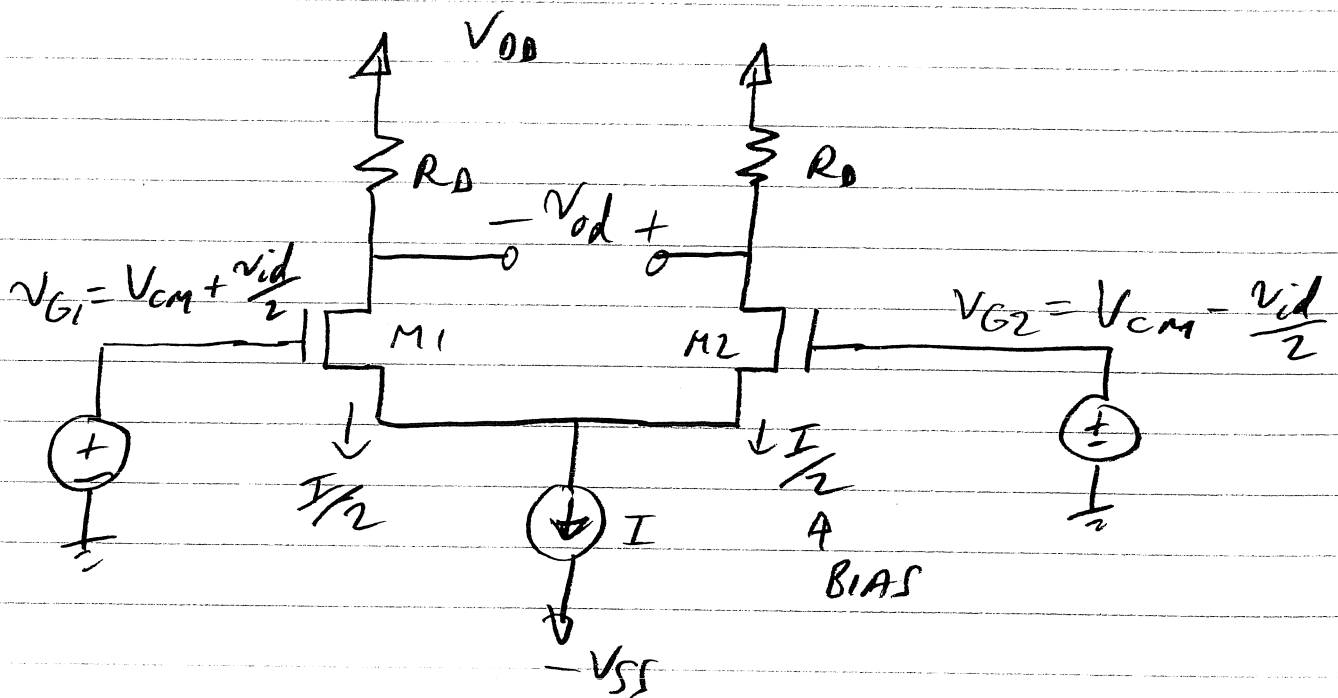 V_DD
R_D
R_D
− v_od +
v_G1 = V_CM + v_id/2
V_G2 = V_CM − v_id/2
M1
M2
+
−
+
−
I/2
I/2
I
BIAS
−V_SS